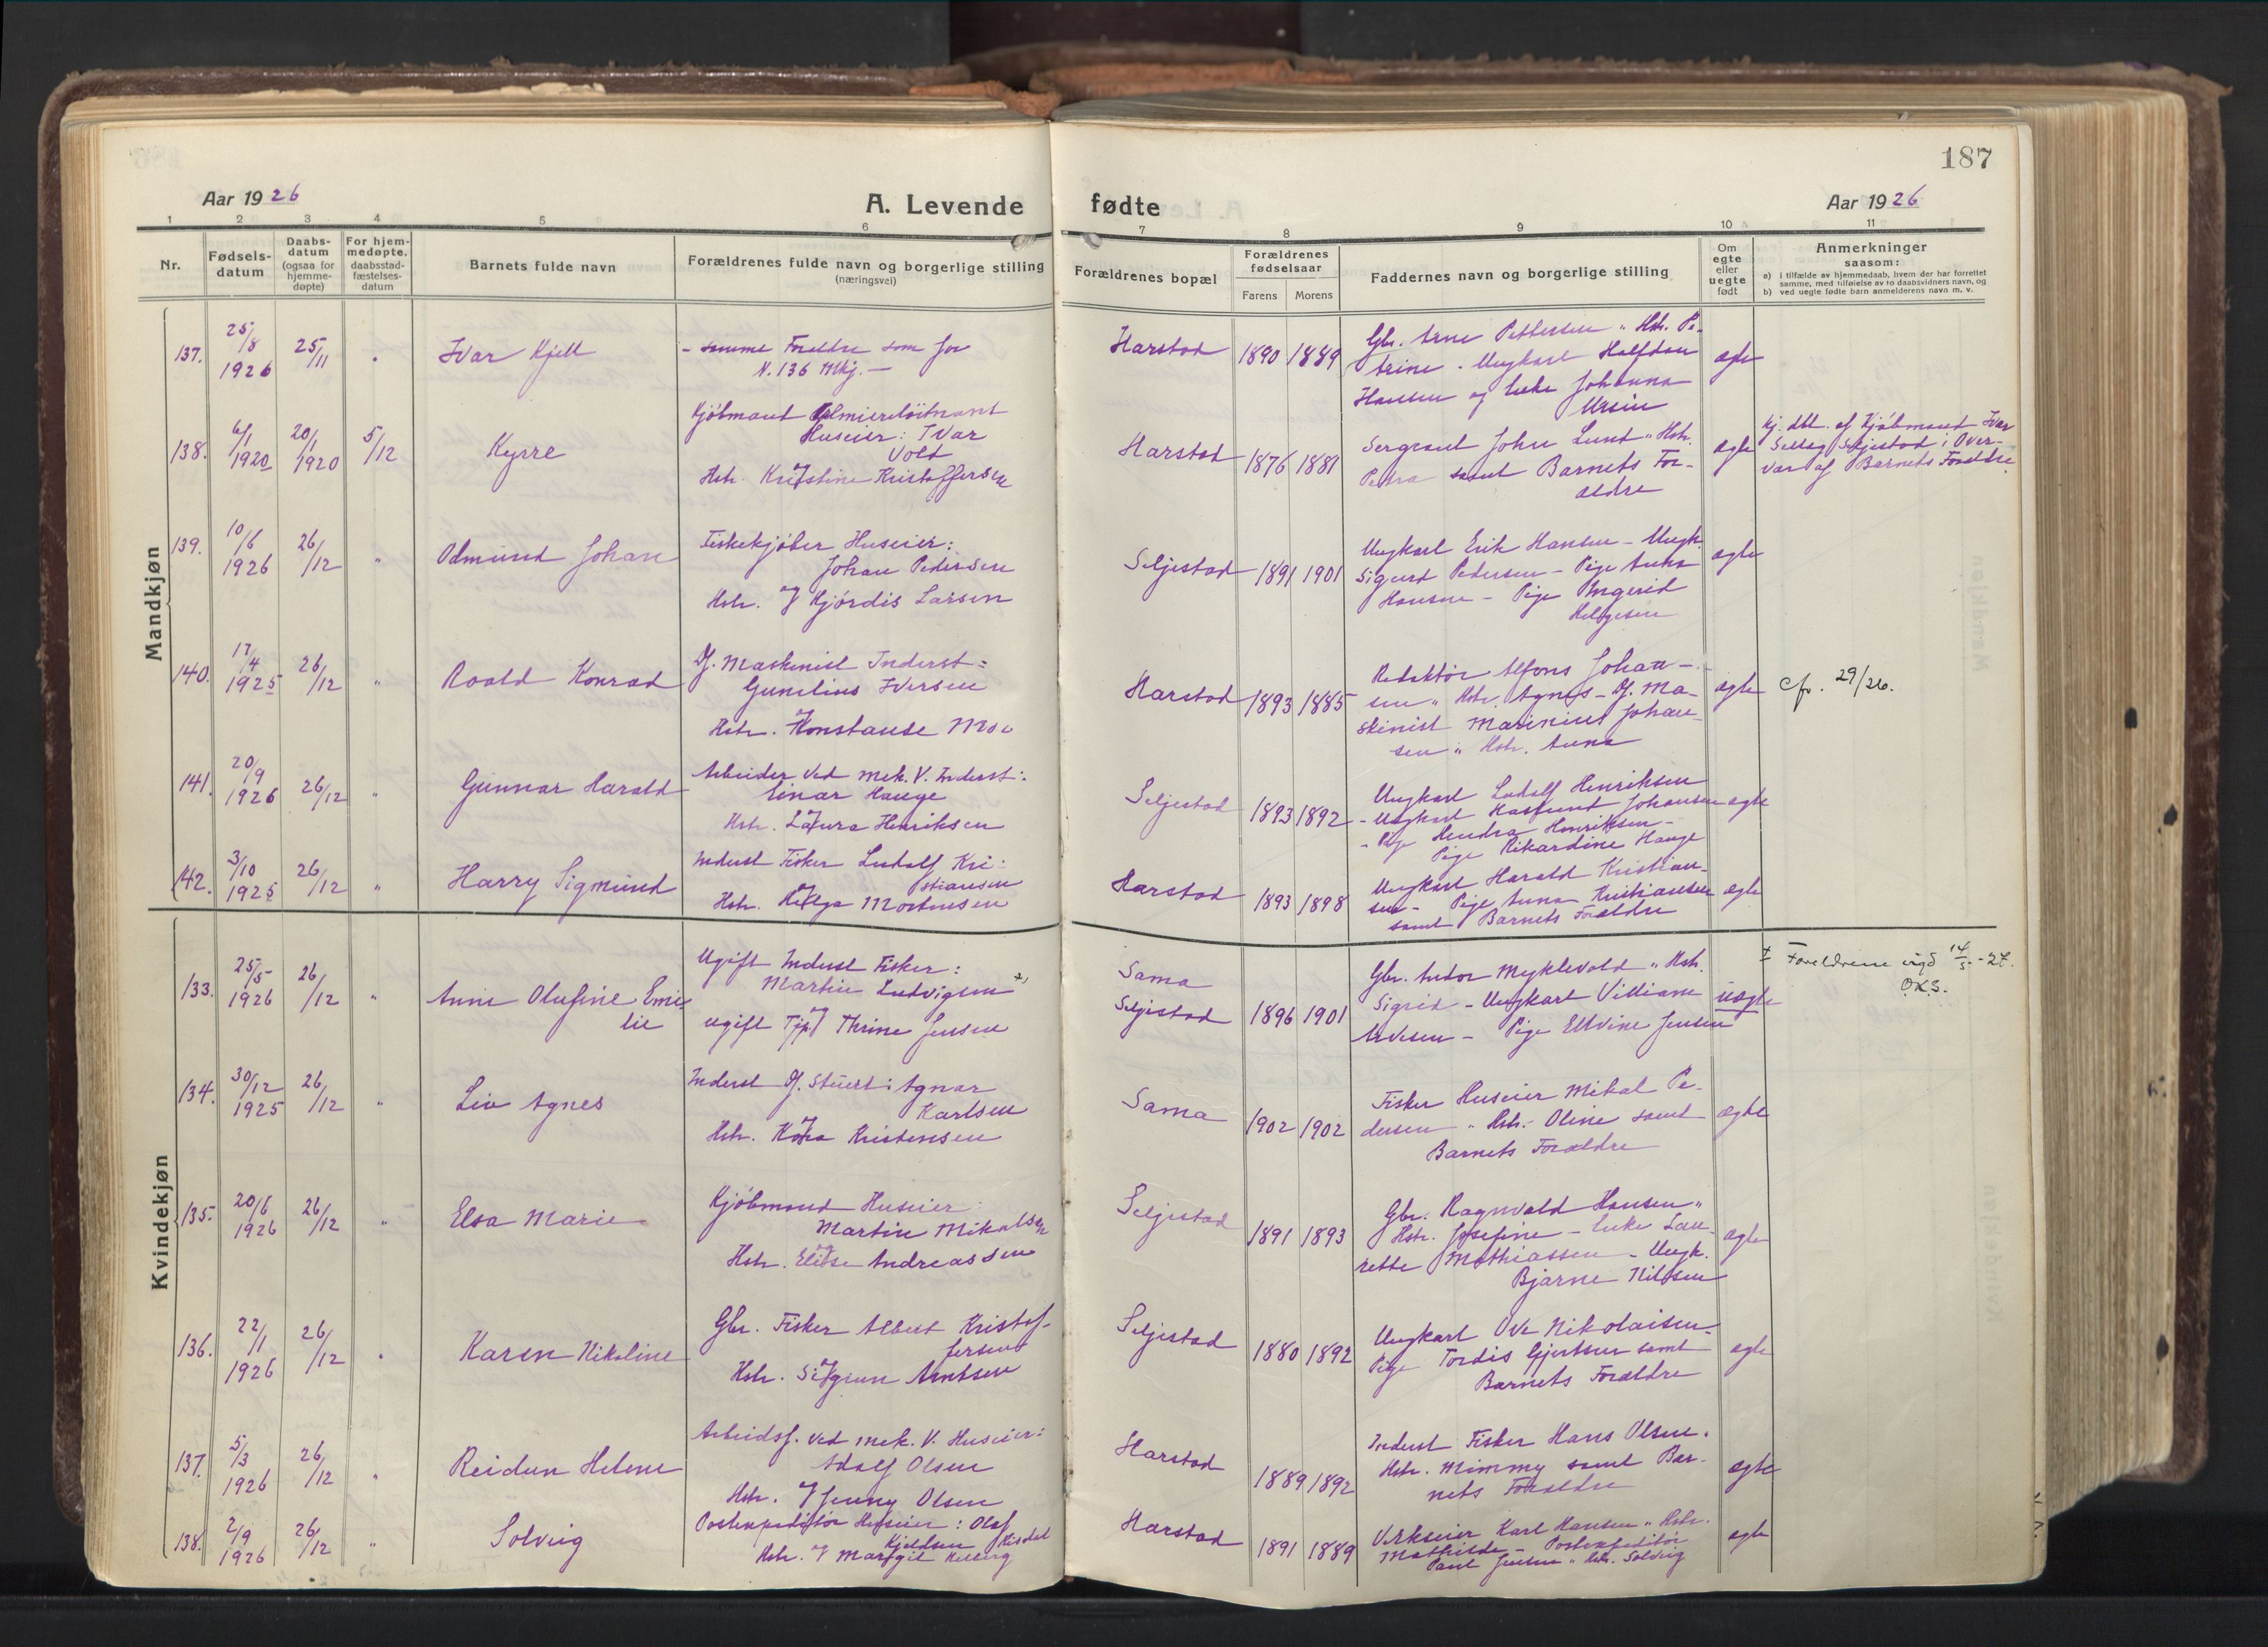 187
Aar 1926
A. Levende
fødte
Aar 1926
1 2 3 4 5 6 7 8 9 10 11
Nr.
Fødsels-
datum
Daabs-
datum
(ogsaa for
hjemme-
døpte)
For hjem-
medøpte,
daabsstad-
fæstelses-
datum
Barnets fulde navn
Forældrenes fulde navn og borgerlige stilling
(næringsvei)
Forældrenes bopæl
Forældrenes
fødselsaar
Farens Morens
Faddernes navn og borgerlige stilling
Om
egte
eller
uegte
født
Anmerkninger
saasom:
a) i tilfælde av hjemmedaab, hvem der har forrettet
samme, med tilføielse av to daabsvidners navn, og
b) ved uegte fødte barn anmelderens navn m. v.
Mandkjøn
137. 25/8 1926 25/11 "
Ivar Kjell
- samme Forældre som for
N. 136 Mkj. -
Harstad 1890 1889
Gbr. Arne Pettersen " Hstr. Pe-
trine - Ungkarl Halfdan
Hansen og Enke Johanna
Ursin
ægte
138. 6/1 1920 20/1 1920 5/12
Kyrre
Kjøbmand Premierløitnant
Huseier: Ivar
Vold
Hstr. Kristine Kristoffersen
Harstad 1876 1881
Sergeant John Lund " Hstr.
Petra samt Barnets For-
ældre
ægte
hj. dbt. af Kjøbmand Ivar
Seljestad i Over-
vær af Barnets Forældre
139. 10/6 1926 26/12 "
Odmund Johan
Fiskekjøber Huseier:
Johan Pedersen
Hstr. og Hjørdis Larsen
Seljestad 1891 1901
Ungkarl Erik Hansen - Ungk.
Sigurd Pedersen - Pige Anna
Hansen - Pige Ingerid
Helgesen
ægte
140. 17/4 1925 26/12 "
Roald Konrad
Df. Maskinist Inderst:
Gunelius Iversen
og
Hstr. Konstanse Moe
Harstad 1893 1885
Redaktør Alfons Johan-
sen " Hstr. Agnes - Df. Ma-
skinist Marinius Johan-
sen " Hstr. Anna
ægte
cfr. 29/26.
141. 20/9 1926 26/12 "
Gunnar Harald
Arbeider ved mek. V. Inderst:
Einar Hauge
Hstr. Laura Henriksen
Seljestad 1893 1892
Ungkarl Ludolf Henriksen
- Ungkarl Johansen
- Pige Hendra Henriksen -
Pige Rikardine Hauge
ægte
142. 3/10 1925 26/12 "
Harry Sigmund
Inderst Fisker Ludolf Kri-
stiansen
Hstr. Helga Mortensen
Harstad 1893 1898
Ungkarl Harald Kristian-
sen - Pige Anna Kristiansen
samt Barnets Forældre
ægte
Kvindekjøn
133. 25/5 1926 26/12 "
Anne Olufine Emi-
lie
Ugift Inderst Fisker:
Martin Ludvigsen
ugift Tjp. Thrine Jensen
Sama
Seljestad 1896 1901
Gbr. Andor Myklevold " Hstr.
Sigrid - Ungkarl Villiam
Arvesen - Pige Ellvine Jensen
uægte
Foreldrene vigd 14/5 - 27.
O.K.S.
134. 30/12 1925 26/12 "
Liv Agnes
Inderst Df. Stuert: Agnar
Karlsen
Hstr. Kristensen
Sama 1902 1902
Fisker Huseier Mikal Pe-
dersen " Hstr. Oline samt
Barnets Forældre
ægte
135. 20/6 1926 26/12 "
Elsa Marie
Kjøbmand Huseier:
Martin Mikalsen
Hstr. Elise Andreassen
Seljestad 1891 1893
Gbr. Ragnvald Hansen "
Hstr. Josefine - Enke Lau-
rette Mathiassen - Ungk.
Bjarne Nilsen
ægte
136. 22/1 1926 26/12 "
Karen Nikoline
Gbr. Fisker Albert Kristof-
fersen
Hstr. Sigrun Arntsen
Seljestad 1880 1892
Ungkarl Ove Nikolaisen -
Pige Tordis Gjertsen samt
Barnets Forældre
ægte
137. 5/3 1926 26/12 "
Reidun Helene
Arbeidsf. ved mek. V. Huseier:
Adolf Olsen
Hstr. og Jenny Olsen
Harstad 1889 1892
Inderst Fisker Hans Olsen "
Hstr. Mimmy samt Bar-
nets Forældre
ægte
138. 2/9 1926 26/12 "
Solveig
Postexpeditør Huseier: Olaf
Kjeldsen
Hstr. og Margit
Harstad 1891 1889
Verkseier Karl Hansen " Hstr.
Mathilde - Postexpeditør
Paul Jensen " Hstr. Solveig
ægte